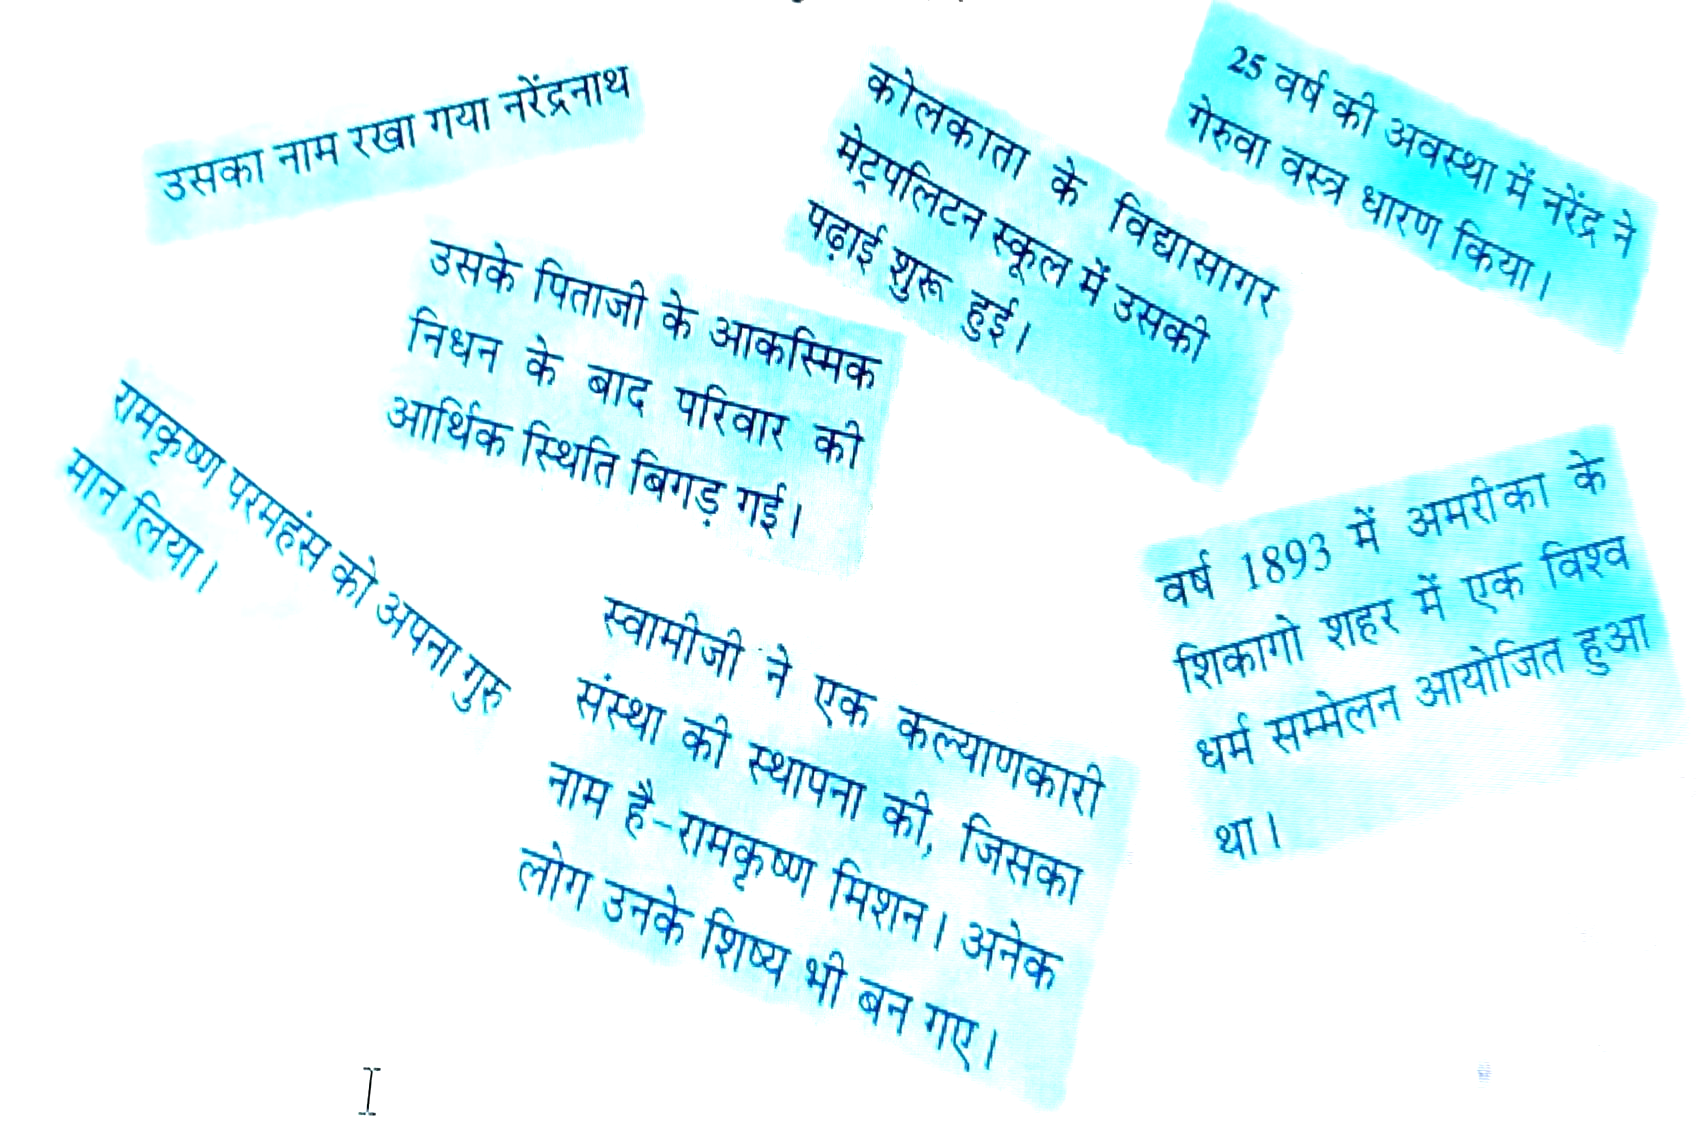 उसका नाम रखा गया नरेंद्रनाथ
कोलकाता के विद्यासागर
मेट्रपलिटन स्कूल में उसकी
पढ़ाई शुरू हुई।
25 वर्ष की अवस्था में नरेंद्र ने
गेरुवा वस्त्र धारण किया।
उसके पिताजी के आकस्मिक
निधन के बाद परिवार की
आर्थिक स्थिति बिगड़ गई।
रामकृष्ण परमहंस को अपना गुरु
मान लिया।
वर्ष 1893 में अमरीका के
शिकागो शहर में एक विश्व
धर्म सम्मेलन आयोजित हुआ
था।
स्वामीजी ने एक कल्याणकारी
संस्था की स्थापना की, जिसका
नाम है-रामकृष्ण मिशन। अनेक
लोग उनके शिष्य भी बन गए।